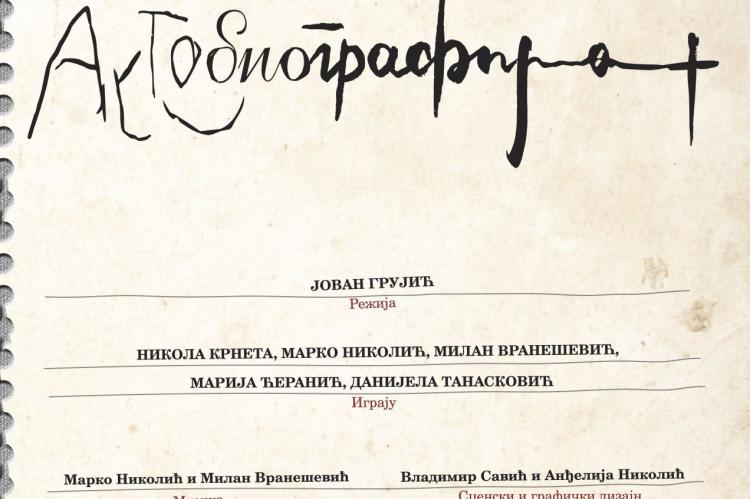 ЈОВАН ГРУЈИЋ
Режија
НИКОЛА КРНЕТА, МАРКО НИКОЛИЋ, МИЛАН ВРАНЕШЕВИЋ,
МАРИЈА ЋЕРАНИЋ, ДАНИЈЕЛА ТАНАСКОВИЋ
Играју
Марко Николић и Милан Вранешевић
Музика
Владимир Савић и Анђелија Николић
Сценски и графички дизајн